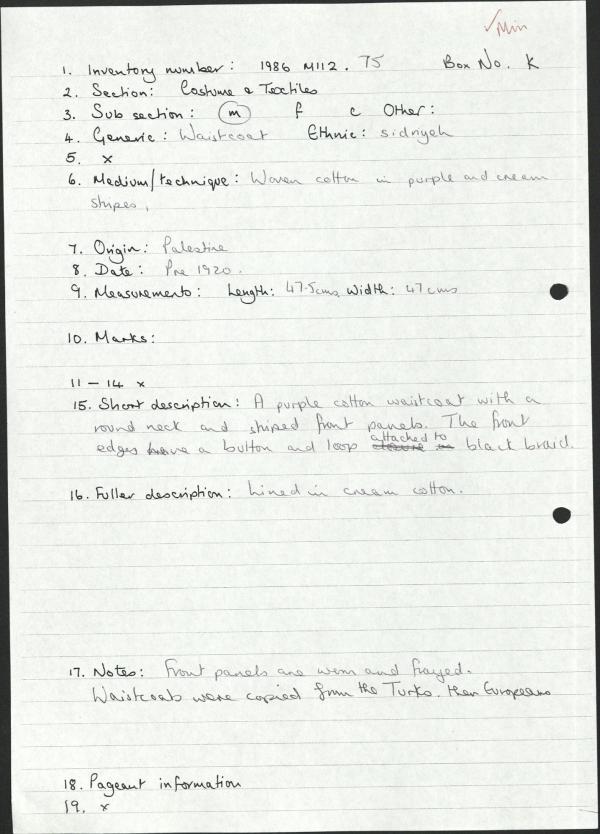 ✓Min
1. Inventory number: 1986 M112. 75 Box No. K
2. Section: Costume & Textiles
3. Sub section: m f c Other:
4. Generic: Waistcoat Ethnic: sidriyeh
5. x
6. Medium/technique: Woven cotton in purple and cream
stripes,
7. Origin: Palestine
8. Date: Pre 1920.
9. Measurements: Length: 47.5cms, Width: 47cms
10. Marks:
11 – 14 x
15. Short description: A purple cotton waistcoat with a
round neck and striped front panels. The front
edges have a button and loop attached to black braid.
16. Fuller description: Lined in cream cotton.
17. Notes: Front panels are worn and frayed.
Waistcoats were copied from the Turks. then Europeans
18. Pageant information
19. x